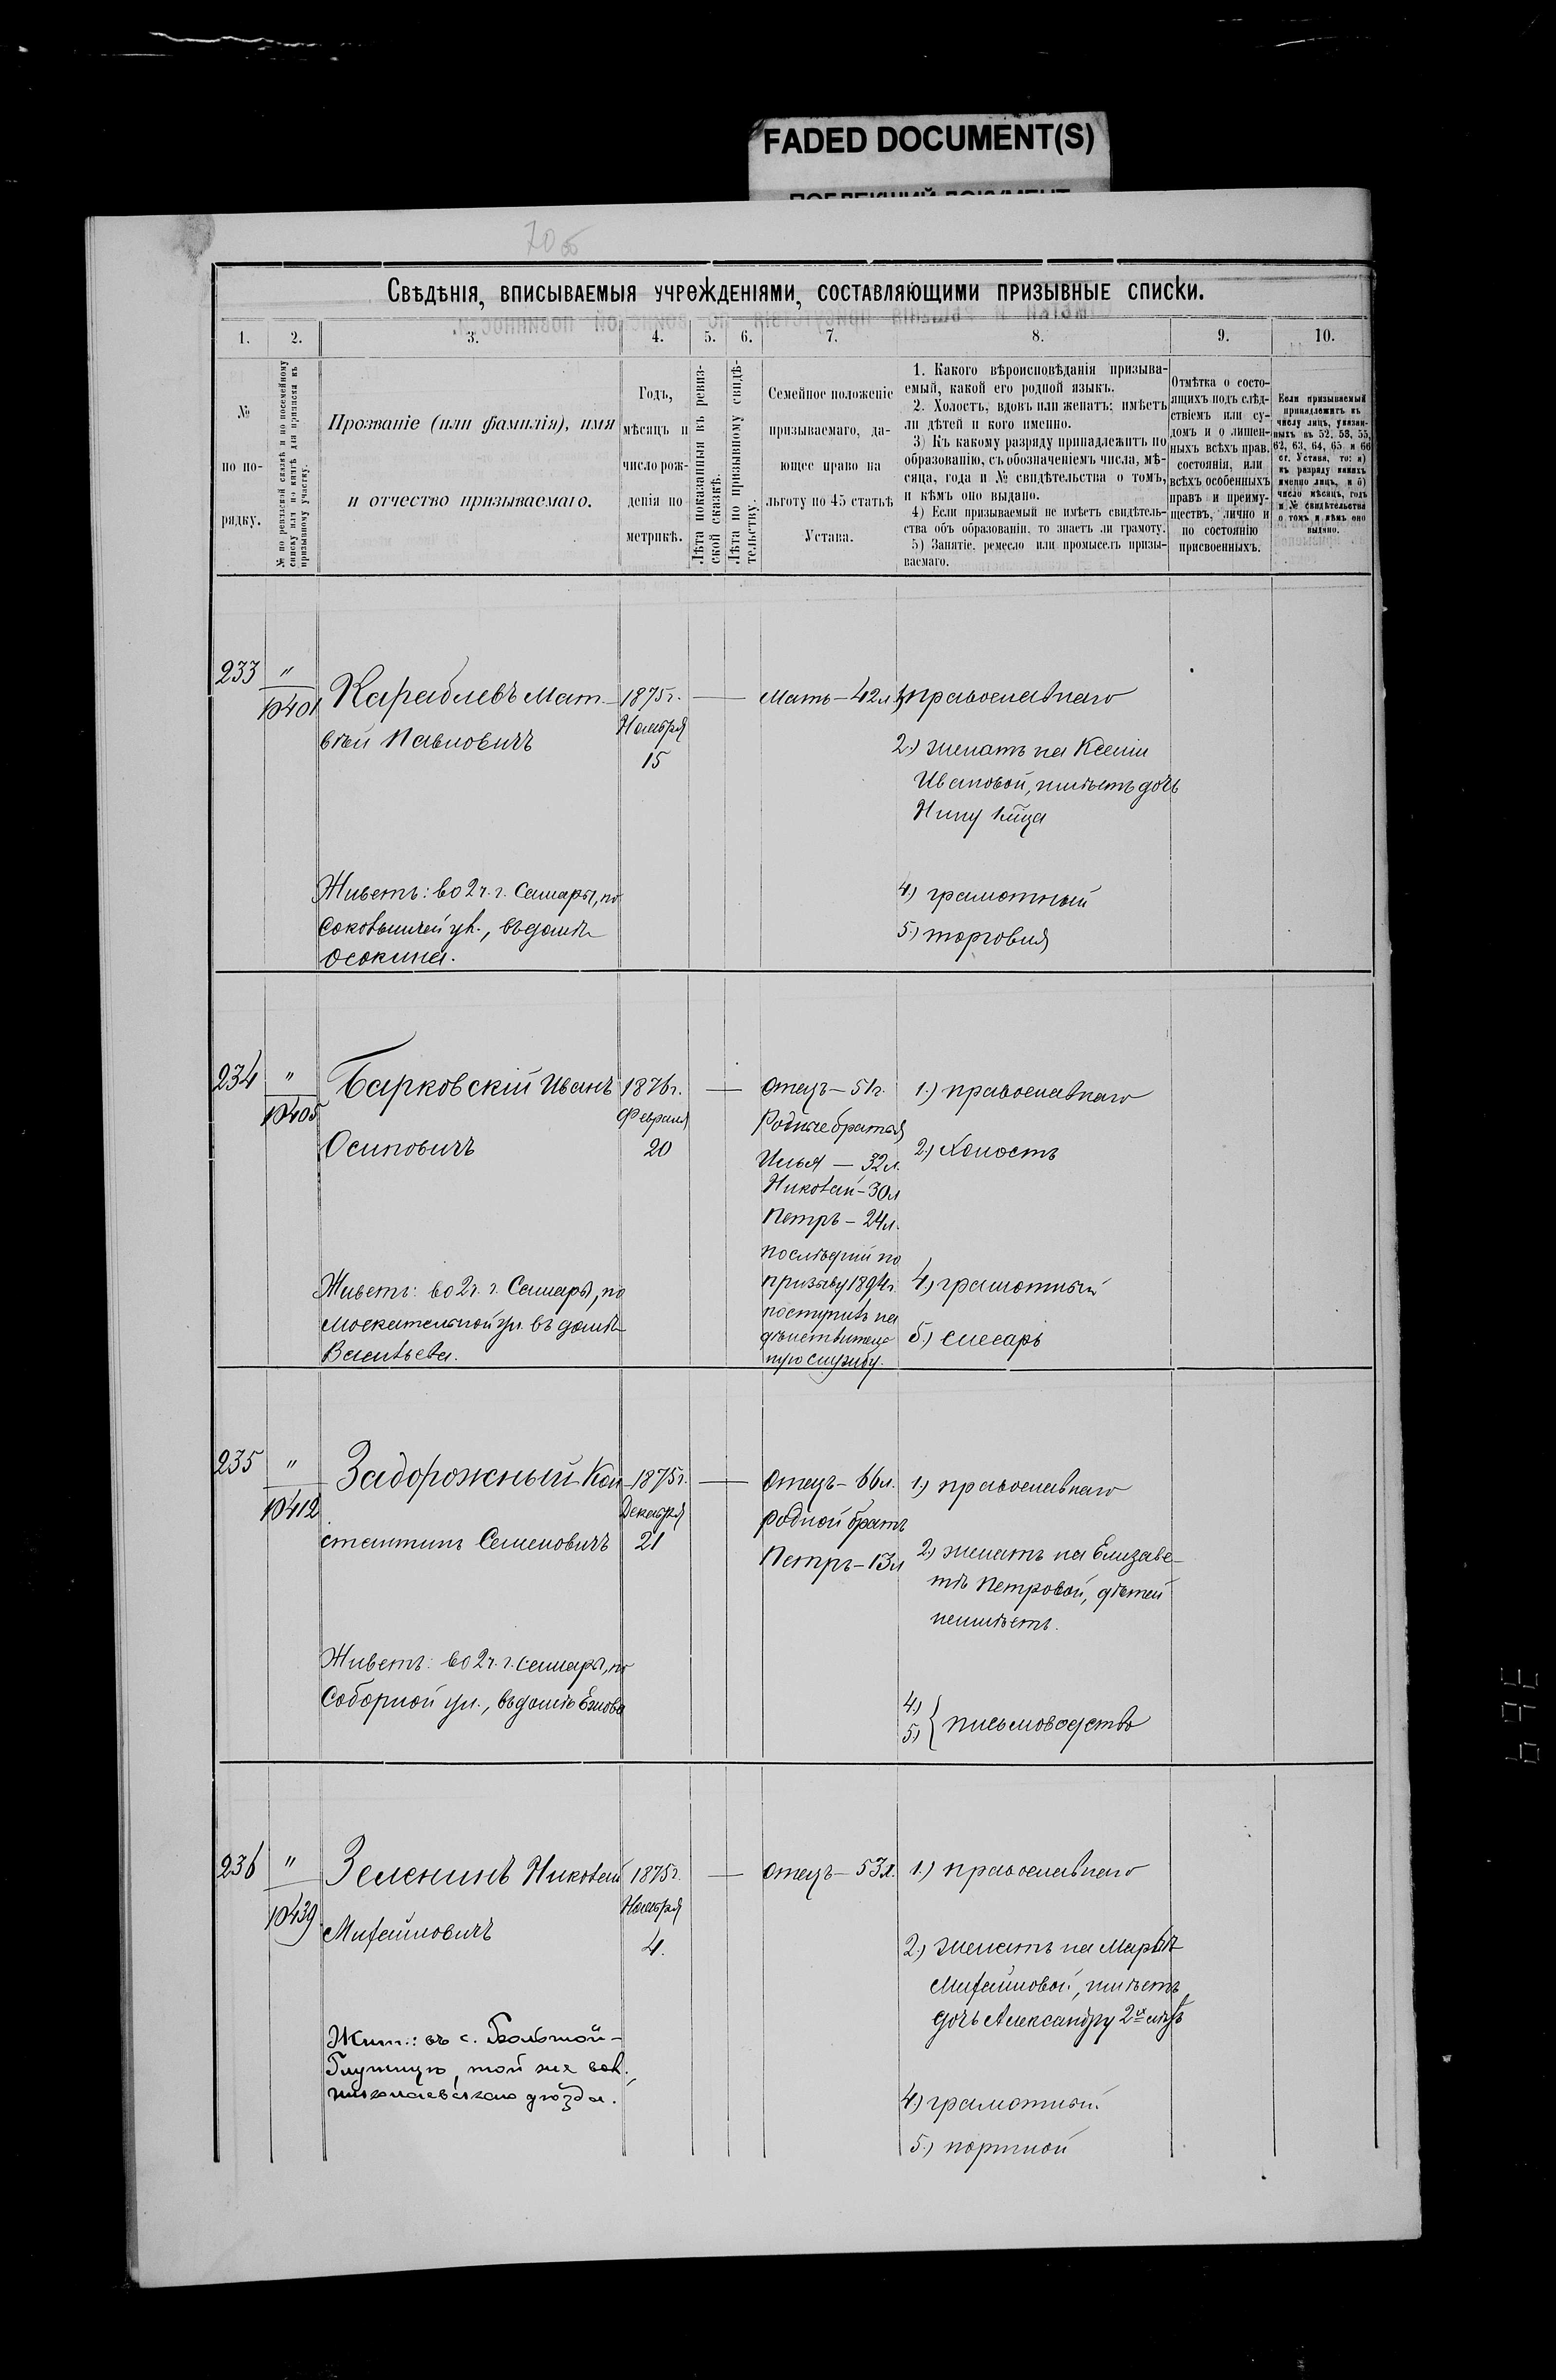 FADED DOCUMENT(S)
70 об
Свѣдѣнія, вписываемыя учрежденіями, составляющими призывные списки.
1. 2. 3. 4. 5. 6. 7. 8. 9. 10.
№
по по-
рядку.
№ по ревизской сказкѣ и по посемейному
списку или по книгѣ для приписки къ
призывному участку.
Прозваніе (или фамилія), имя
и отчество призываемаго.
Годъ,
мѣсяцъ и
число рож-
денія по
метрикѣ.
Лѣта показанныя въ ревиз-
ской сказкѣ.
Лѣта по призывному свидѣ-
тельству.
Семейное положеніе
призываемаго, да-
ющее право на
льготу по 45 статьѣ
Устава.
1. Какого вѣроисповѣданія призыва-
емый, какой его родной языкъ.
2. Холостъ, вдовъ или женатъ; имѣетъ
ли дѣтей и кого именно.
3) Къ какому разряду принадлежитъ по
образованію, съ обозначеніемъ числа, мѣ-
сяца, года и № свидѣтельства о томъ,
и кѣмъ оно выдано.
4) Если призываемый не имѣетъ свидѣтель-
ства объ образованіи, то знаетъ ли грамоту.
5) Занятіе, ремесло или промыселъ призы-
ваемаго.
Отмѣтка о состо-
ящихъ подъ слѣд-
ствіемъ или су-
домъ и о лишен-
ныхъ всѣхъ прав.
состоянія, или
всѣхъ особенныхъ
правъ и преиму-
ществъ, лично и
по состоянію
присвоенныхъ.
Если призываемый
принадлежитъ къ
числу лицъ, указан-
ныхъ въ 52, 53, 55,
62, 63, 64, 65 и 66
ст. Устава, то: а)
къ разряду какихъ
именно лицъ, и б)
число мѣсяцъ, годъ
и № свидѣтельства
о томъ и кѣмъ оно
выдано.
233
"
10401
Караблевъ Мат-
вѣй Павловичъ
1875 г.
Ноября
15
Мать — 42 л.
1) православнаго
2.) женатъ на Ксеніи
Ивановой, имѣетъ дочь
Нину
4.) грамотный
5.) торговля
Живетъ: во 2 ч. г. Самары, по
ул., въ домѣ
Осокина.
234
"
10405
Барковскій Иванъ
Осиповичъ
1876 г.
Февраля
20
Отецъ — 51 г.
Родные братья
Илья — 32 л.
Николай — 30 л
Петръ — 24 л.
послѣдній по
призыву 1894 г.
поступилъ на
дѣйствитель
ную службу.
1.) православнаго
2.) Холостъ
4.) грамотный
5.) слесарь
Живетъ: во 2 ч. г. Самары, по
Москательной ул. въ домѣ
Васильева.
235
"
10412
Задорожный Кон-
стантинъ Семеновичъ
1875 г.
Декабря
21
Отецъ — 66 л.
родной братъ
Петръ — 13 л
1.) православнаго
2.) женатъ на Елизаве-
тѣ Петровой, дѣтей
неимѣетъ.
4.)
5.) { письмоводство
Живетъ: во 2 ч. г. Самары, по
Соборной ул., въ домѣ
236
"
10439
Зеленинъ Николай
Михайловичъ
1875 г.
Ноября
4.
отецъ — 53 л.
1.) православнаго
2.) женатъ на Марьѣ
Михайловой, имѣетъ
дочь Александру 2-хъ лѣтъ
4.) грамотный.
5.) портной
Жит.: въ с. Большой-
Глушицѣ, той же вол.,
николаевскаго уѣзда.